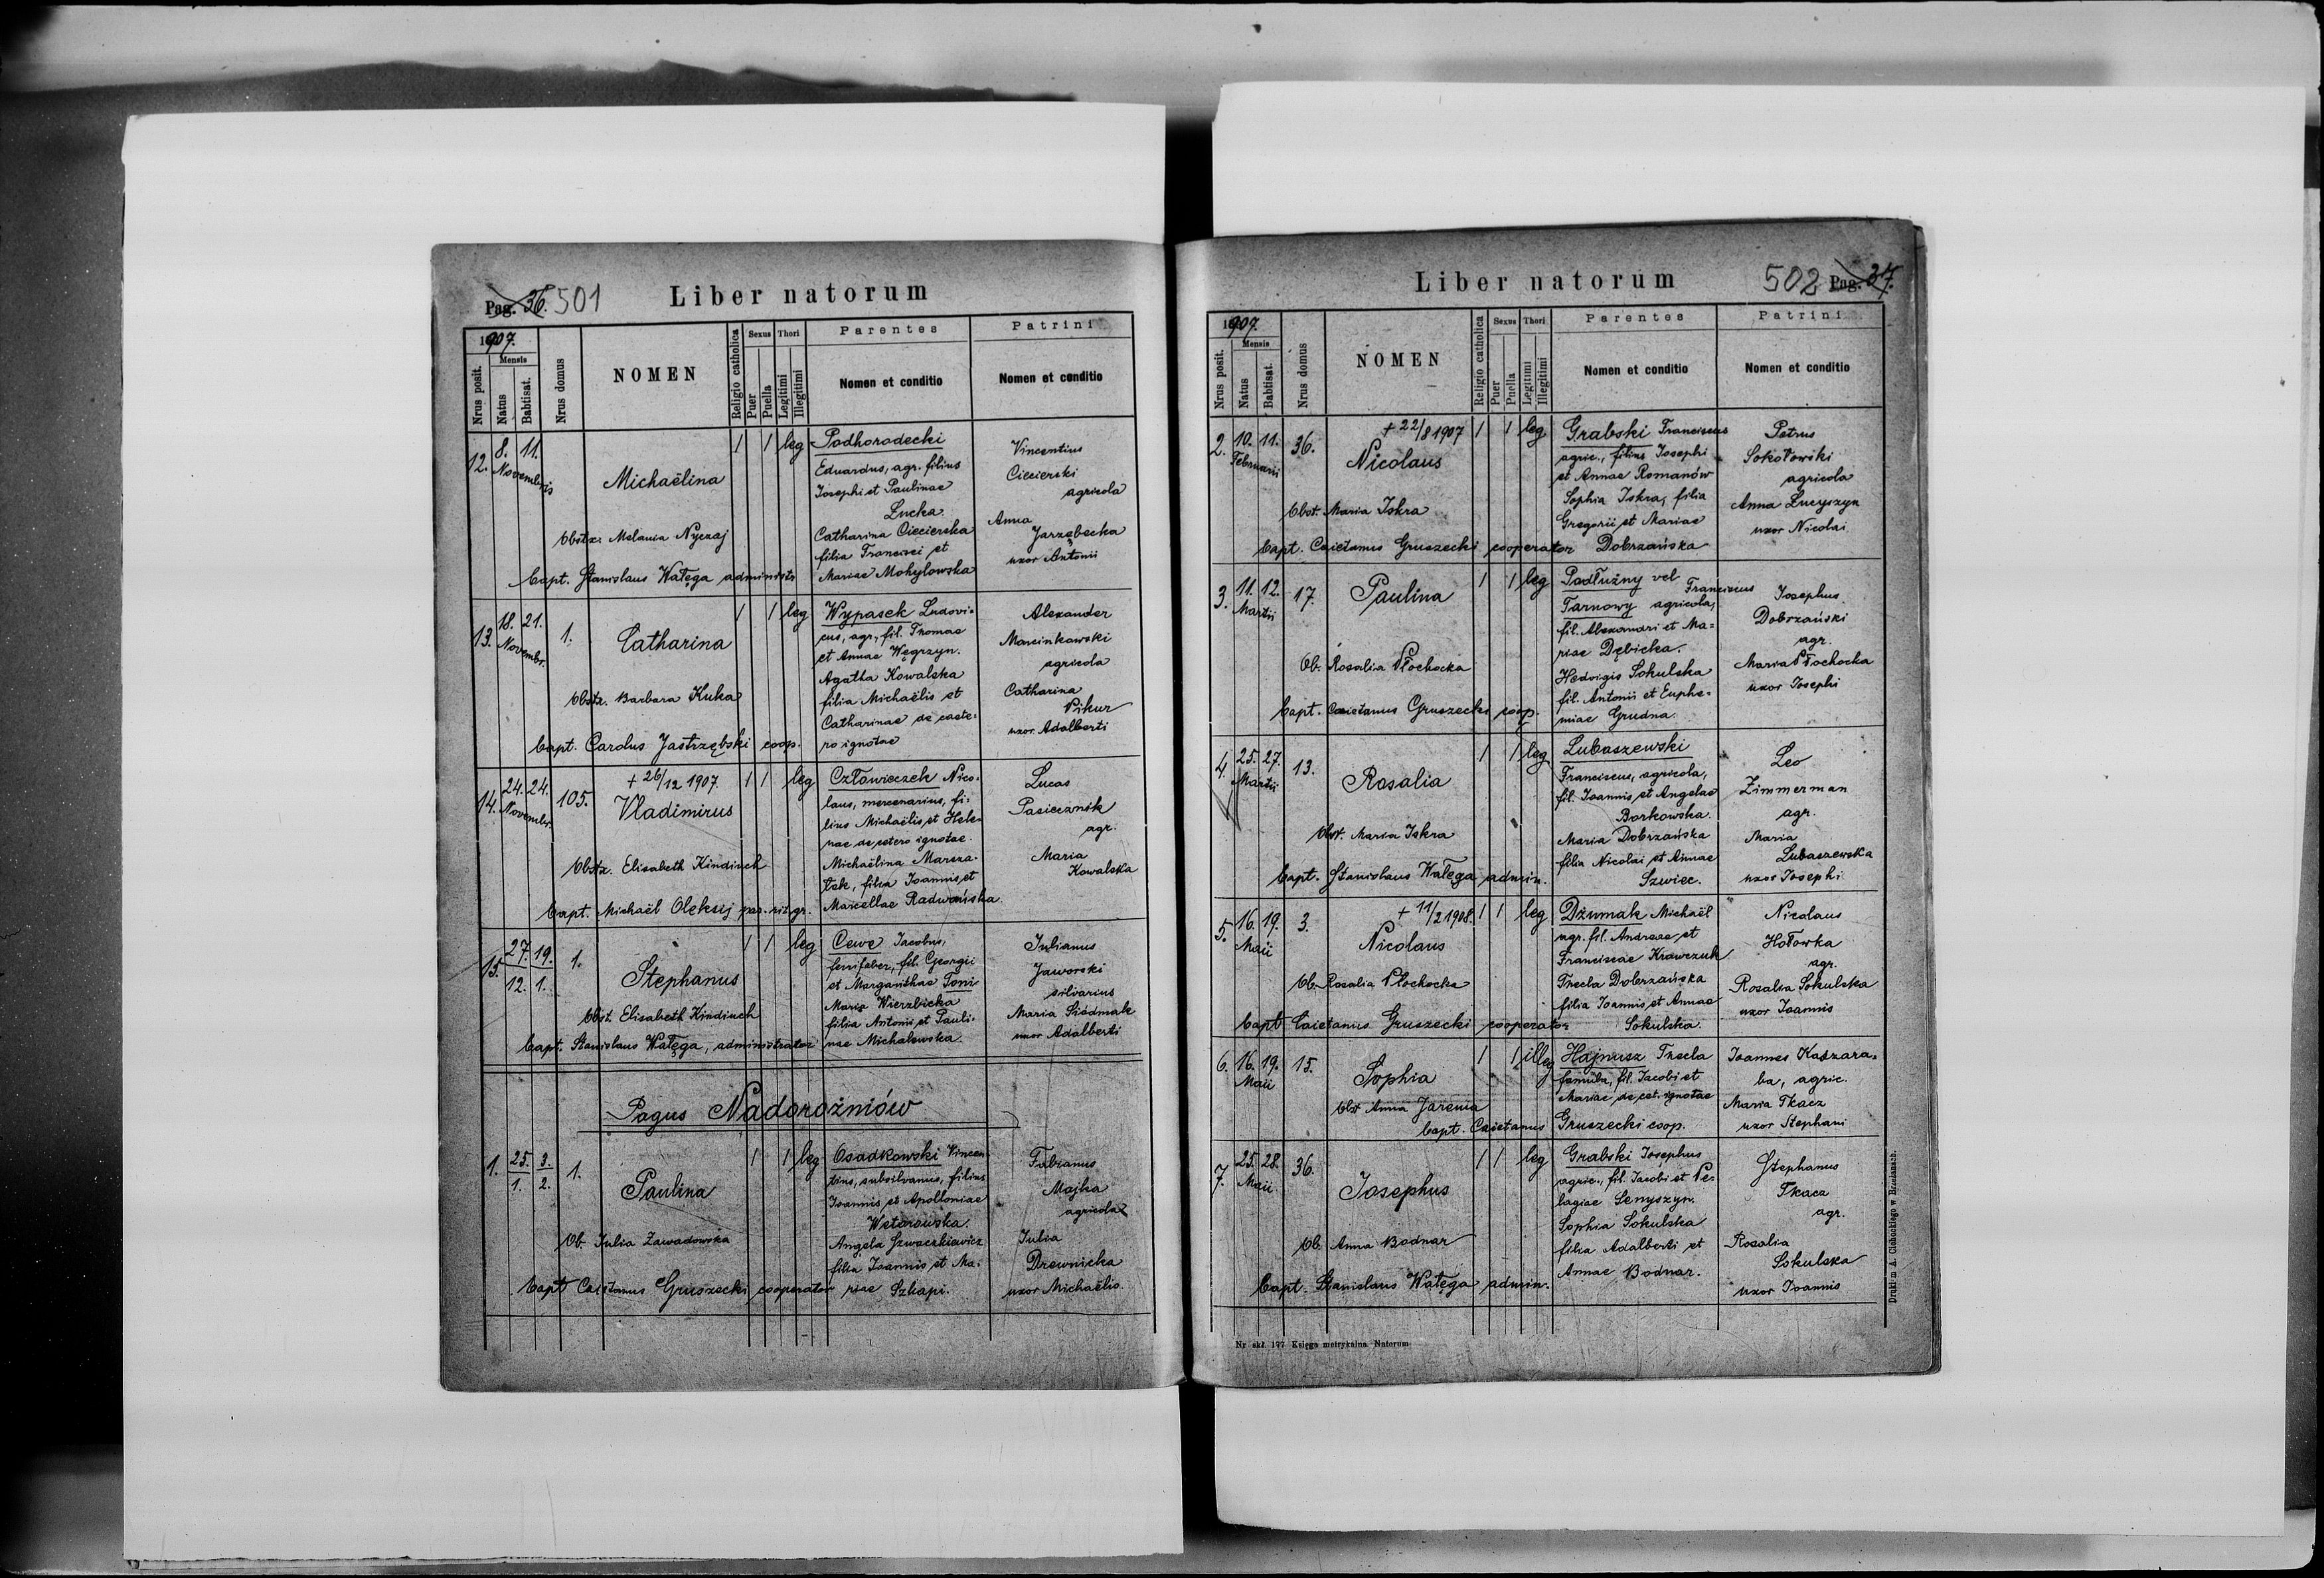 Pag. 36. 501
Liber natorum
1907.
Nrus posit.
Mensis
Natus
Babtisat.
Nrus domus
NOMEN
Religio catholica
Sexus
Puer
Puella
Thori
Legitimi
Illegitimi
Parentes
Nomen et conditio
Patrini
Nomen et conditio
12.
8. 11.
Novembris
Michaëlina
1 1 leg
Podhorodecki
Eduardus, agr. filius
Josephi et Paulinae
Lucka.
Catharina Ciecierska
filia Francisci et
Mariae Mohylowska
Vincentius
Ciecierski
agricola
Anna
Jarzębecka
uxor Antonii
Obstx. Melania Nyczaj
bapt. Stanislaus Wałęga administr
13.
18. 21.
Novembr.
1.
Catharina
1 1 leg
Wypasek Ludovi-
cus, agr., fil. Thomae
et Annae Węgrzyn.
Agatha Kowalska
filia Michaëlis et
Catharinae de caete-
ro ignotae
Alexander
Marcinkowski
agricola
Catharina
Pikur
uxor Adalberti
Obstx. Barbara Kuka
bapt. Carolus Jastrzębski coop.
14.
24. 24.
Novembr.
105.
+ 26/12 1907
Vladimirus
1 1 leg
Człowieczek Nico-
laus, mercenarius, fi-
lius Michaëlis et Hele-
nae de cetero ignotae.
Michaëlina Marsza-
łek, filia Joannis et
Marcellae Radwańska
Lucas
Pasiecznik
agr.
Maria
Kowalska
Obstx. Elisabeth Kindinch
bapt. Michaël Oleksij par. rit. gr.
15.
27. 19.
12. 1.
1.
Stephanus
1 1 leg
Cewe Jacobus,
ferrifaber, fil. Georgii
et Margarithae Toni
Maria Wierzbicka
filia Antonii et Pauli-
nae Michalewska.
Julianus
Jaworski
silvarius
Maria Siedmak
uxor Adalberti
Obst. Elisabeth Kindinch
bapt. Stanislaus Wałęga, administrator
Pagus Nadorożniów
1.
25. 3.
1. 2.
1.
Paulina
1 1 leg
Osadkowski Vincen-
tius, subsilvanus, filius
Joannis et Apolloniae
Wetorowska.
Angela Szwaczkiewicz
filia Joannis et Ma-
riae Szkapi.
Fabianus
Majka
agricola
Julia
Drewnicka
uxor Michaëlis.
Ob. Julia Zawadowska
bapt Caietanus Gruszecki cooperator
Liber natorum
502 Pag. 37.
1907.
Nrus posit.
Mensis
Natus
Babtisat.
Nrus domus
NOMEN
Religio catholica
Sexus
Puer
Puella
Thori
Legitimi
Illegitimi
Parentes
Nomen et conditio
Patrini
Nomen et conditio
2.
10. 11.
Februarii
36.
+ 22/8 1907
Nicolaus
1 1 leg
Grabski Franciscus
agric., filius Josephi
et Annae Romanów
Sophia Iskra, filia
Gregorii et Mariae
Dobrzańska
Petrus
Sokołowski
agricola
Anna Łucyszyn
uxor Nicolai
Obst. Maria Iskra
bapt. Caietanus Gruszecki cooperator
3.
11. 12.
Martii
17.
Paulina
1 1 leg
Podłużny vel
Franciscus
Tarnowy agricola,
fil. Alexandri et Ma-
riae Dębicka.
Hedvigis Sokulska
fil. Antonii et Euphe-
miae Grudna.
Josephus
Dobrzański
agr.
Maria Płochocka
uxor Josephi
Ob. Rosalia Płochocka
bapt. Caietanus Gruszecki coop.
4.
25. 27.
Martii
13.
Rosalia
1 1 leg
Lubaszewski
Franciscus, agricola,
fil. Joannis et Angelae
Borkowska.
Maria Dobrzańska
filia Nicolai et Annae
Szwiec.
Leo
Zimmerman
agr.
Maria
Lubaszewska
uxor Josephi
Obst. Maria Iskra
bapt. Stanislaus Wałęga admin.
5.
16. 19.
Maii
3.
+ 11/2 1908.
Nicolaus
1 1 leg
Dżumak Michaël
agr. fil. Andreae et
Franciscae Krawczuk
Thecla Dobrzańska
filia Joannis et Annae
Sokulska.
Nicolaus
Hołowka
agr.
Rosalia Sokulska
uxor Joannis
Ob. Rosalia Płochocka
bapt Caietanus Gruszecki cooperator
6.
16. 19.
Maii
15.
Sophia
1 1 illeg
Hajnusz Thecla
famula, fil. Jacobi et
Mariae de cet. ignotae
Joannes Kaszara-
ba, agric.
Maria Tkacz
uxor Stephani
Obst Anna Jarema
bapt. Caietanus Gruszecki coop.
7.
25. 28.
Maii
36.
Josephus
1 1 leg
Grabski Josephus
agric., fil. Jacobi et Pe-
lagiae Senyszyn.
Sophia Sokulska
filia Adalberti et
Annae Bodnar.
Stephanus
Tkacz
agr.
Rosalia
Sokulska
uxor Joannis
Ob. Anna Bodnar
bapt. Stanislaus Wałęga admin.
Nr. skł. 177 Księga metrykalna Natorum
Drukiem A. Cichockiego w Brzeżanach.